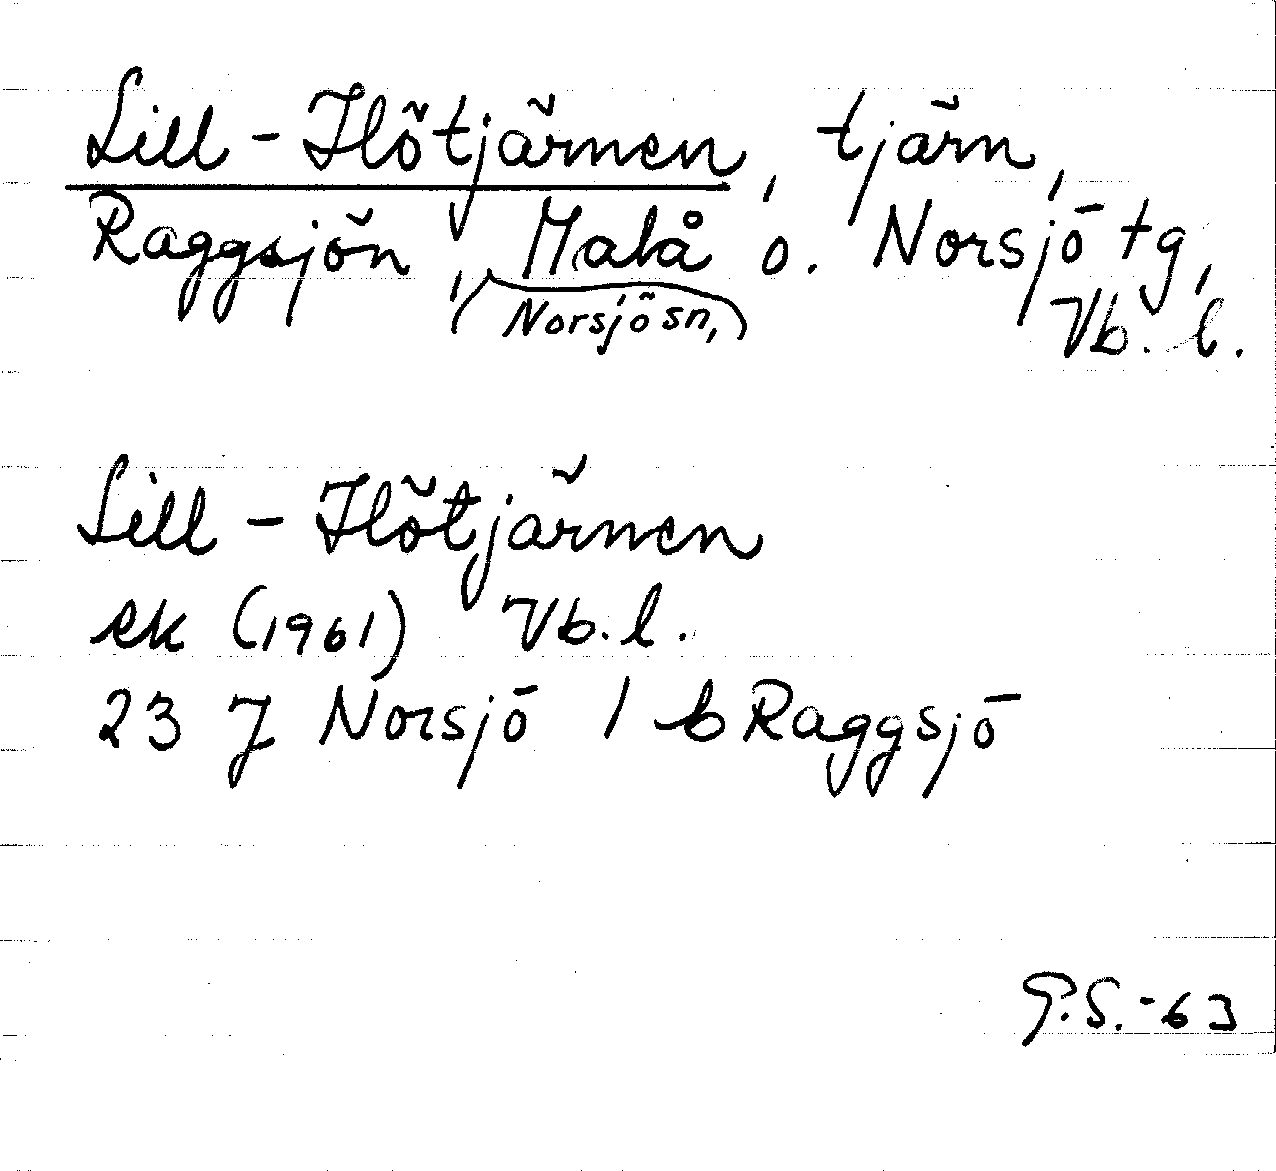 Lill-Flötjärnen, tjärn,
Raggsjön, Malå o. Norsjö tg,
(Norsjö sn,) Vb. l.
Lill-Flötjärnen
ek (1961) Vb. l.
23 J Norsjö 1 b Raggsjö
G.S.-63